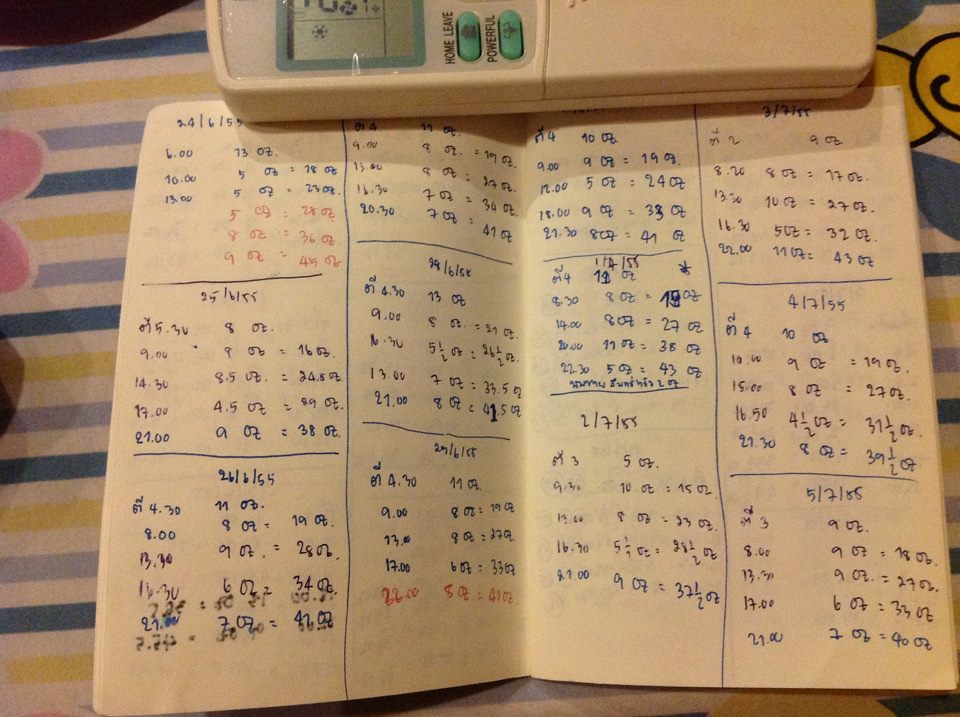 HOME LEAVE
POWERFUL
24/6/55
6.00 13 oz.
10.00 5 oz = 18 oz
13.00 5 oz = 23 oz.
5 oz = 28 oz
8 oz = 36 oz.
9 oz = 45 oz.
25/6/55
ตี 5.30 8 oz.
9.00 8 oz = 16 oz.
14.30 8.5 oz. = 24.5 oz
17.00 4.5 oz = 29 oz.
21.00 9 oz = 38 oz.
26/6/55
ตี 4.30 11 oz.
8.00 8 oz = 19 oz.
13.30 9 oz. = 28 oz.
16.30 6 oz = 34 oz
21.00 7 oz = 41 oz
ตี 4 11 oz.
9.00 8 oz. = 19 oz.
13.00 8 oz = 27 oz.
16.30 7 oz = 34 oz
20.30 7 oz = 41 oz
28/6/55
ตี 4.30 13 oz
9.00 8 oz = 21 oz.
16.30 5 1/2 oz = 26 1/2 oz.
13.00 7 oz = 33.5 oz
21.00 8 oz = 41.5 oz
29/6/55
ตี 4.30 11 oz.
9.00 8 oz = 19 oz
13.00 8 oz = 27 oz
17.00 6 oz = 33 oz
22.00 8 oz = 41 oz.
ตี 4 10 oz
9.00 9 oz = 19 oz.
12.00 5 oz = 24 oz
18.00 9 oz = 33 oz
21.30 8 oz = 41 oz
1/7/55
ตี 4 11 oz
8.30 8 oz = 19 oz
14.00 8 oz = 27 oz
20.00 11 oz = 38 oz
22.30 5 oz = 43 oz
2/7/55
ตี 3 5 oz.
9.30 10 oz = 15 oz.
13.00 8 oz = 23 oz.
16.30 5 1/2 oz = 28 1/2 oz
21.00 9 oz = 37 1/2 oz
3/7/55
ตี 2 9 oz
8.20 8 oz = 17 oz.
13.30 10 oz = 27 oz.
16.30 5 oz = 32 oz
22.00 11 oz = 43 oz
4/7/55
ตี 4 10 oz
10.00 9 oz = 19 oz.
15.00 8 oz = 27 oz.
16.50 4 1/2 oz = 31 1/2 oz.
21.30 8 oz = 39 1/2 oz
5/7/55
ตี 3 9 oz.
8.00 9 oz = 18 oz.
13.30 9 oz. = 27 oz.
17.00 6 oz = 33 oz
21.00 7 oz = 40 oz